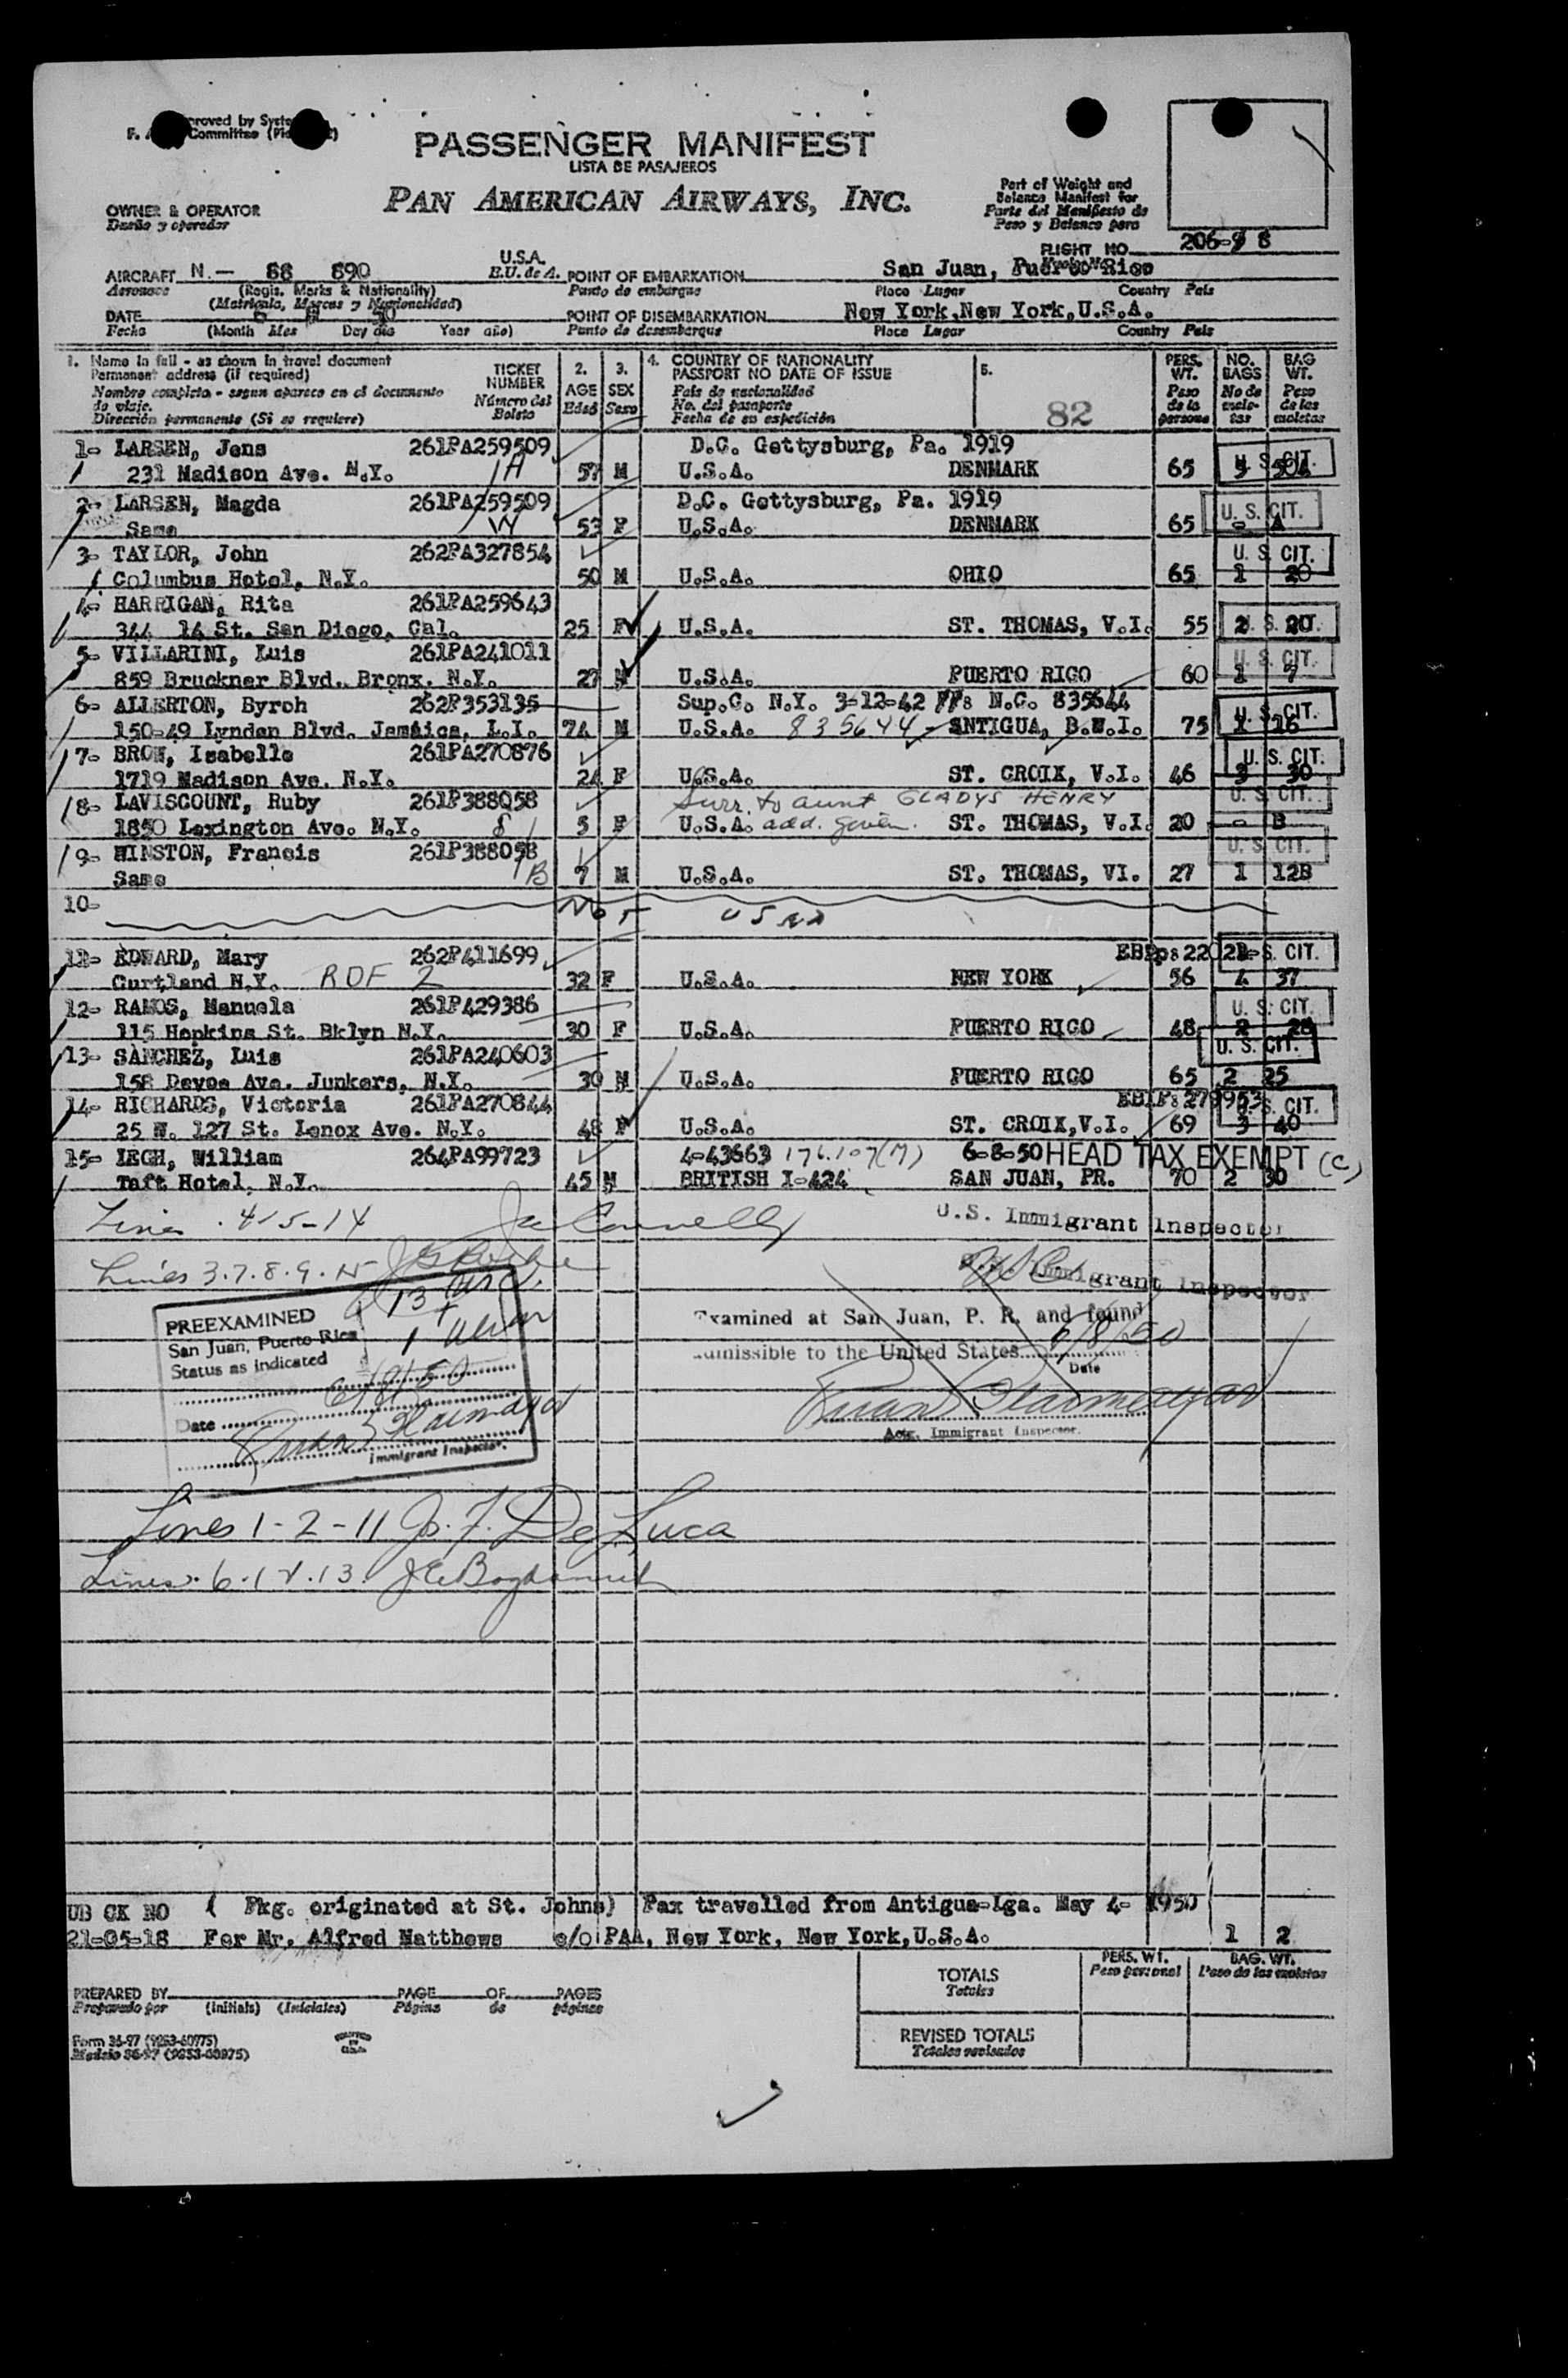 PASSENGER MANIFEST
LISTA DE PASAJEROS
PAN AMERICAN AIRWAYS, INC.
OWNER & OPERATOR
Dueño y operador
Part of Weight and
Balance Manifest for
Parte del Manifiesto de
Peso y Balance para
FLIGHT NO. 206-9 8
AIRCRAFT N.— 88 890 U.S.A. POINT OF EMBARKATION San Juan, Puerto Rico
Aeronave (Regis. Marks & Nationality) E.U. de A. Punto de embarque Place Lugar Country Pais
(Matricula, Marcas y Nacionalidad)
DATE POINT OF DISEMBARKATION New York, New York, U.S.A.
Fecha (Month Mes Day dia Year año) Punto de desembarque Place Lugar Country Pais
1. Name in full - as shown in travel document
Permanent address (if required)
Nombre completo - segun aparece en el documento
de viaje.
Dirección permanente (Si se requiere)
TICKET
NUMBER
Número del
Boleto
2.
AGE
Edad
3.
SEX
Sexo
4. COUNTRY OF NATIONALITY
PASSPORT NO DATE OF ISSUE
Pais de nacionalidad
No. del pasaporte
Fecha de su expedición
5.
82
PERS.
WT.
Peso
de la
persona
NO.
BAGS
No de
male-
tas
BAG
WT.
Peso
de las
maletas
1- LARSEN, Jens 261PA259509 D.C. Gettysburg, Pa. 1919
231 Madison Ave. N.Y. 57 M U.S.A. DENMARK 65 U. S. CIT.
2- LARSEN, Magda 261PA259509 D.C. Gettysburg, Pa. 1919
Same W 53 F U.S.A. DENMARK 65 - A U. S. CIT.
3- TAYLOR, John 262PA327854 U. S. CIT.
Columbus Hotel, N.Y. 50 M U.S.A. OHIO 65 1 20
4- HARRIGAN, Rita 261PA259643
344 14 St. San Diego, Cal. 25 F U.S.A. ST. THOMAS, V.I. 55 2 20 U. S. CIT.
5- VILLARINI, Luis 261PA241011 U. S. CIT.
859 Bruckner Blvd. Bronx. N.Y. 27 M U.S.A. PUERTO RICO 60 1 7
6- ALLERTON, Byroh 262P353135 Sup.C. N.Y. 3-12-42 N.C. 835644
150-49 Lynden Blvd. Jamaica, L.I. 74 M U.S.A. 835644 ANTIGUA, B.W.I. 75 1 16 U. S. CIT.
7- BROW, Isabelle 261PA270876 U. S. CIT.
1719 Madison Ave. N.Y. 24 F U.S.A. ST. CROIX, V.I. 46 3 30
8- LAVISCOUNT, Ruby 261P388058 Surr. to aunt GLADYS HENRY U. S. CIT.
1850 Lexington Ave. N.Y. 5 F U.S.A. add. given. ST. THOMAS, V.I. 20 - B
9- WINSTON, Francis 261P388058 U. S. CIT.
Same B 7 M U.S.A. ST. THOMAS, VI. 27 1 12B
10- Not used
11- EDWARD, Mary 262P411699 U. S. CIT.
Curtland N.Y. RDF 2 32 F U.S.A. NEW YORK 56 4 37
12- RAMOS, Manuela 261P429386 U. S. CIT.
115 Hopkins St. Bklyn N.Y. 30 F U.S.A. PUERTO RICO 48 2 28
13- SANCHEZ, Luis 261PA240603 U. S. CIT.
158 Devoe Ave. Junkers, N.Y. 30 M U.S.A. PUERTO RICO 65 2 25
14- RICHARDS, Victoria 261PA270844 U. S. CIT.
25 W. 127 St. Lenox Ave. N.Y. 48 F U.S.A. ST. CROIX,V.I. 69 3 40
15- LEGH, William 264PA99723 4-43663 176.107(M) 6-8-50 HEAD TAX EXEMPT (C)
Taft Hotel, N.Y. 45 M BRITISH I-424 SAN JUAN, PR. 70 2 30
Lines 4-5-14 U.S. Immigrant Inspector
Lines 3.7.8.9.15 Immigrant Inspector
PREEXAMINED
San Juan, Puerto Rico
Status as indicated
6/8/50
Date
Immigrant Inspector.
13
1 alien
Examined at San Juan, P. R. and found
admissible to the United States 6/8/50
Date
Actg. Immigrant Inspector.
Lines 1-2-11 Jo. F. De Luca
Lines 6.12.13
UB CK NO ( Pkg. originated at St. Johns) Pax travelled from Antigua-Lga. May 4- 1950
21-05-18 For Mr. Alfred Matthews c/o PAA, New York, New York, U.S.A. 1 2
TOTALS
Totales
PERS. WT.
Peso personal
BAG. WT.
Peso de las maletas
PREPARED BY PAGE OF PAGES
Preparado por (Initials) (Iniciales) Página de páginas
REVISED TOTALS
Totales revisados
Form 36-97 (9253-60975)
Modelo 36-97 (9253-60975)